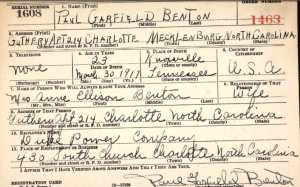 SERIAL NUMBER 1. NAME (Print)
1608 PAUL GARFIELD BENTON 1463
(First) (Middle) (Last)
2. ADDRESS (Print)
GUTHERY APT 214 CHARLOTTE MECKLENBURG NORTH CAROLINA
(Town) (County) (State)
3. TELEPHONE 4. AGE IN YEARS 5. PLACE OF BIRTH 6. COUNTRY OF CITIZENSHIP
23 Knoxville
None DATE OF BIRTH
March 30 1917 Tennessee U. S. A.
7. NAME OF PERSON WHO WILL ALWAYS KNOW YOUR ADDRESS 8. RELATIONSHIP OF THAT PERSON
Mrs Anne Ellison Benton Wife
(Mr., Mrs., Miss) (First) (Middle) (Last)
9. ADDRESS OF THAT PERSON
Guthery Apt 214 Charlotte North Carolina
10. EMPLOYER'S NAME
Duke Power Company
11. PLACE OF EMPLOYMENT OR BUSINESS
430 South Church Charlotte North Carolina
I AFFIRM THAT I HAVE VERIFIED ABOVE ANSWERS AND THAT THEY ARE TRUE.
REGISTRATION CARD
Paul Garfield Benton